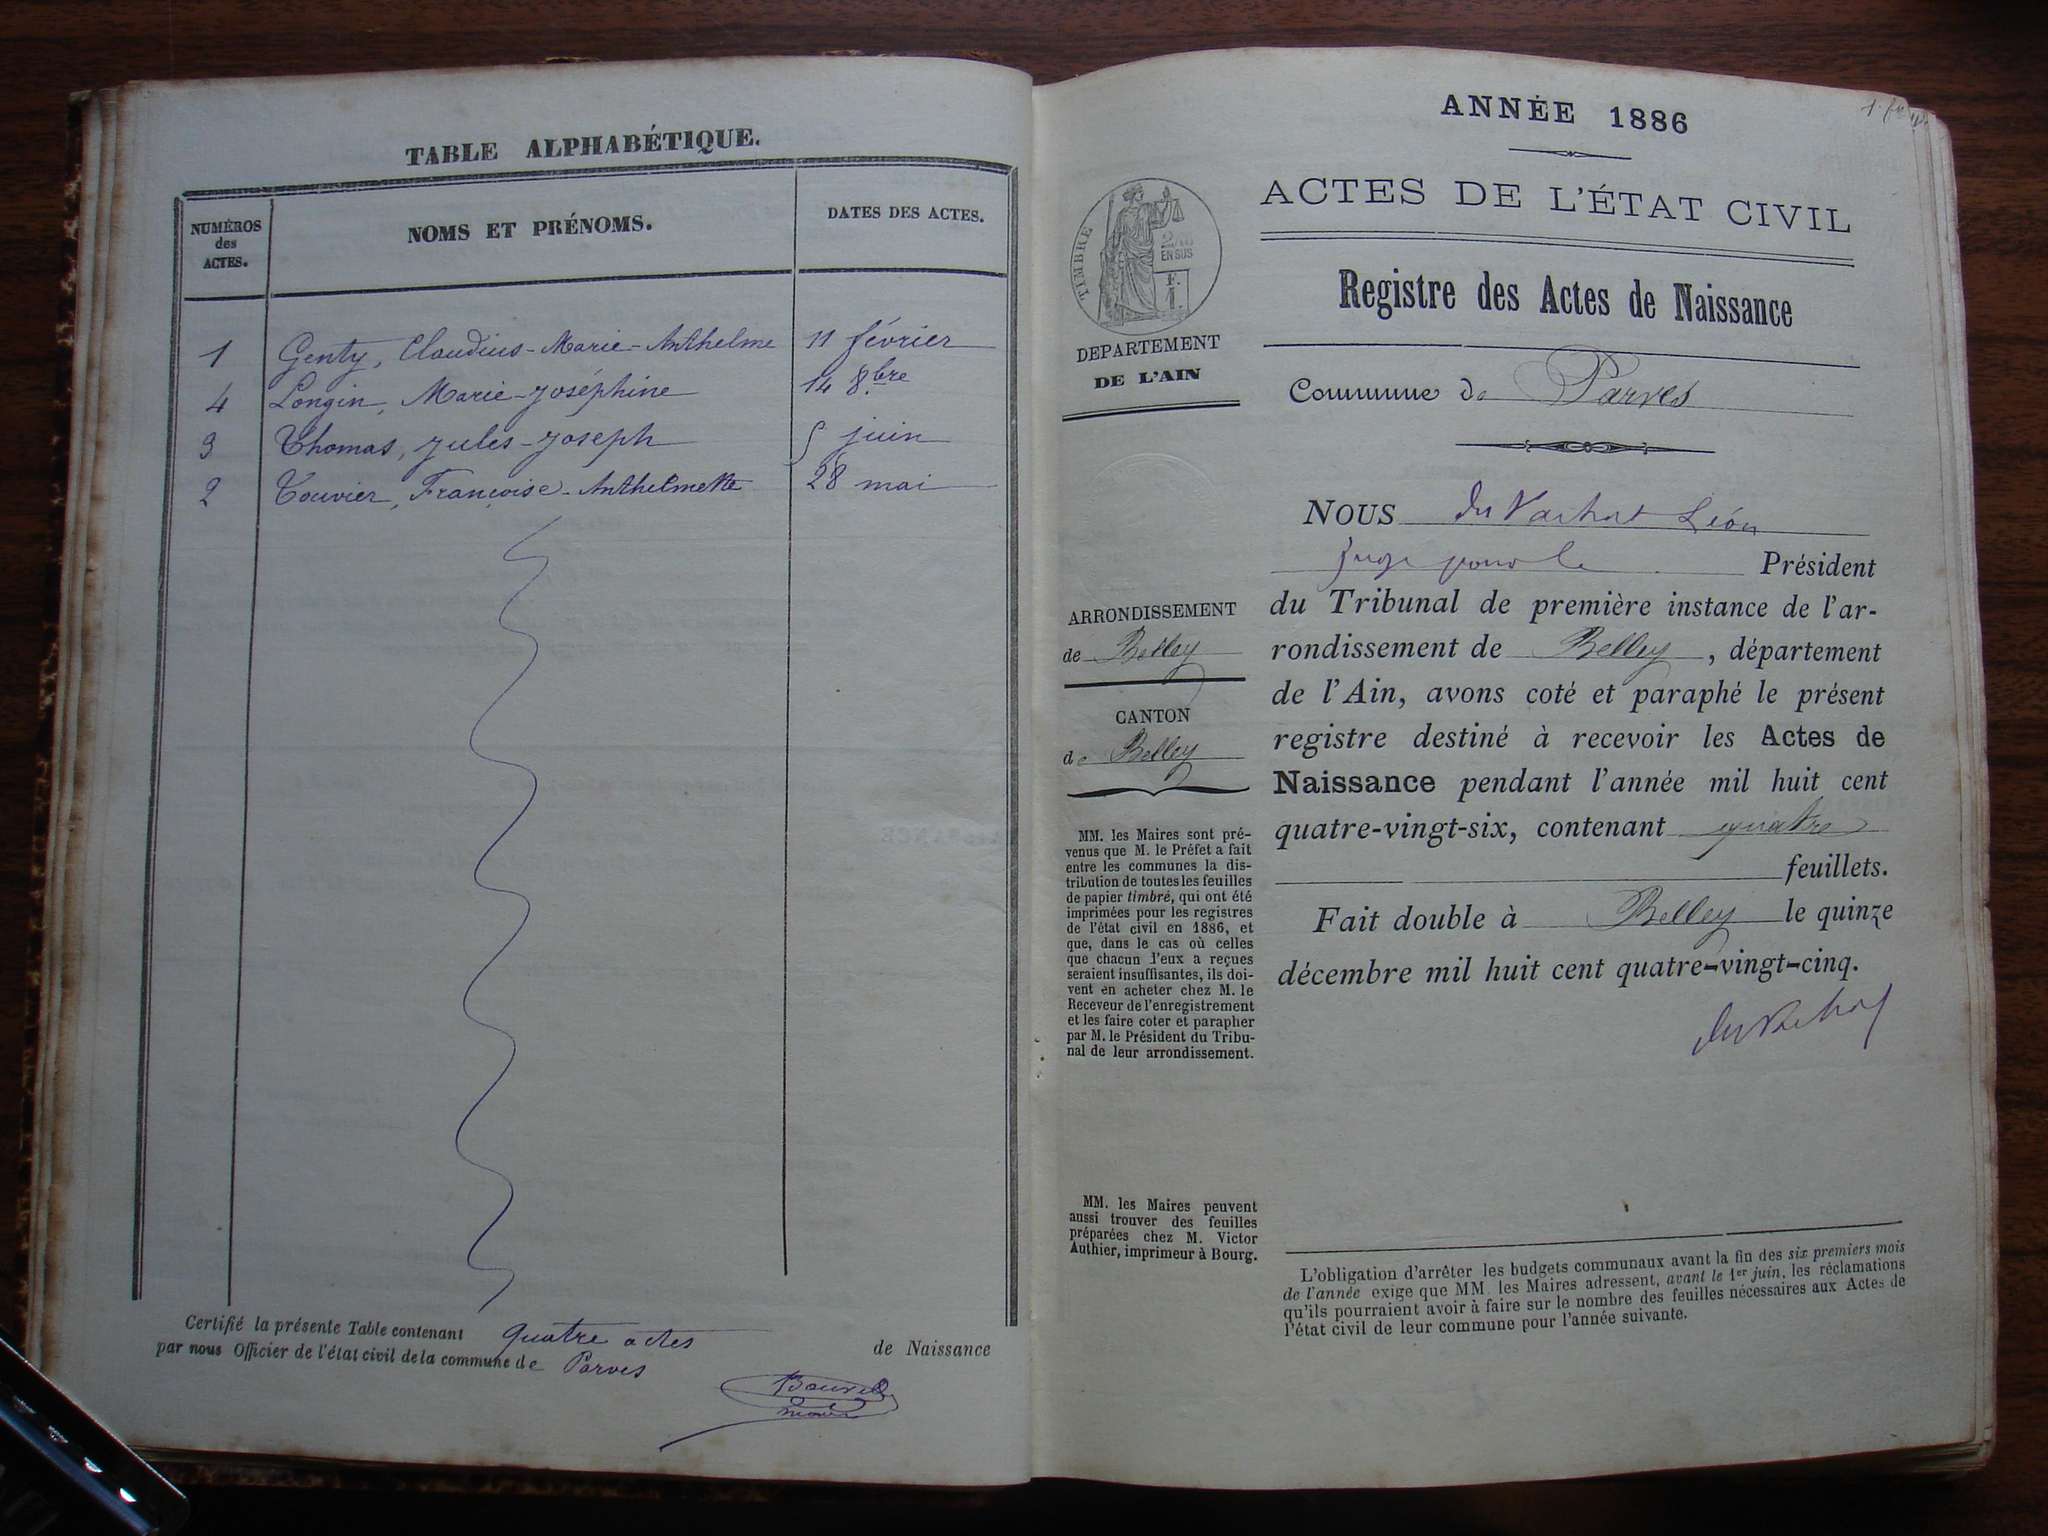 TABLE ALPHABÉTIQUE.
NUMÉROS
des
ACTES.
NOMS ET PRÉNOMS.
DATES DES ACTES.
1 Genty, Claudius-Marie-Anthelme 11 février
4 Longin, Marie-Joséphine 14 8.bre
3 Thomas, Jules-Joseph 5 juin
2 Touvier, Françoise-Anthelmette 28 mai
Certifié la présente Table contenant quatre actes de Naissance
par nous Officier de l'état civil de la commune de Parves
ANNÉE 1886
ACTES DE L'ÉTAT CIVIL
Registre des Actes de Naissance
Commune de Parves
TIMBRE
2/10
EN SUS
F.
1.
DEPARTEMENT
DE L'AIN
ARRONDISSEMENT
de Belley
CANTON
de Belley
MM. les Maires sont pré-
venus que M. le Préfet a fait
entre les communes la dis-
tribution de toutes les feuilles
de papier timbré, qui ont été
imprimées pour les registres
de l'état civil en 1886, et
que, dans le cas où celles
que chacun d'eux a reçues
seraient insuffisantes, ils doi-
vent en acheter chez M. le
Receveur de l'enregistrement
et les faire coter et parapher
par M. le Président du Tribu-
nal de leur arrondissement.
MM. les Maires peuvent
aussi trouver des feuilles
préparées chez M. Victor
Authier, imprimeur à Bourg.
NOUS du Vachat Léon
Juge pour le Président
du Tribunal de première instance de l'ar-
rondissement de Belley, département
de l'Ain, avons coté et paraphé le présent
registre destiné à recevoir les Actes de
Naissance pendant l'année mil huit cent
quatre-vingt-six, contenant quatre
feuillets.
Fait double à Belley le quinze
décembre mil huit cent quatre-vingt-cinq.
du Vachat
L'obligation d'arrêter les budgets communaux avant la fin des six premiers mois
de l'année exige que MM. les Maires adressent, avant le 1er juin, les réclamations
qu'ils pourraient avoir à faire sur le nombre des feuilles nécessaires aux Actes de
l'état civil de leur commune pour l'année suivante.